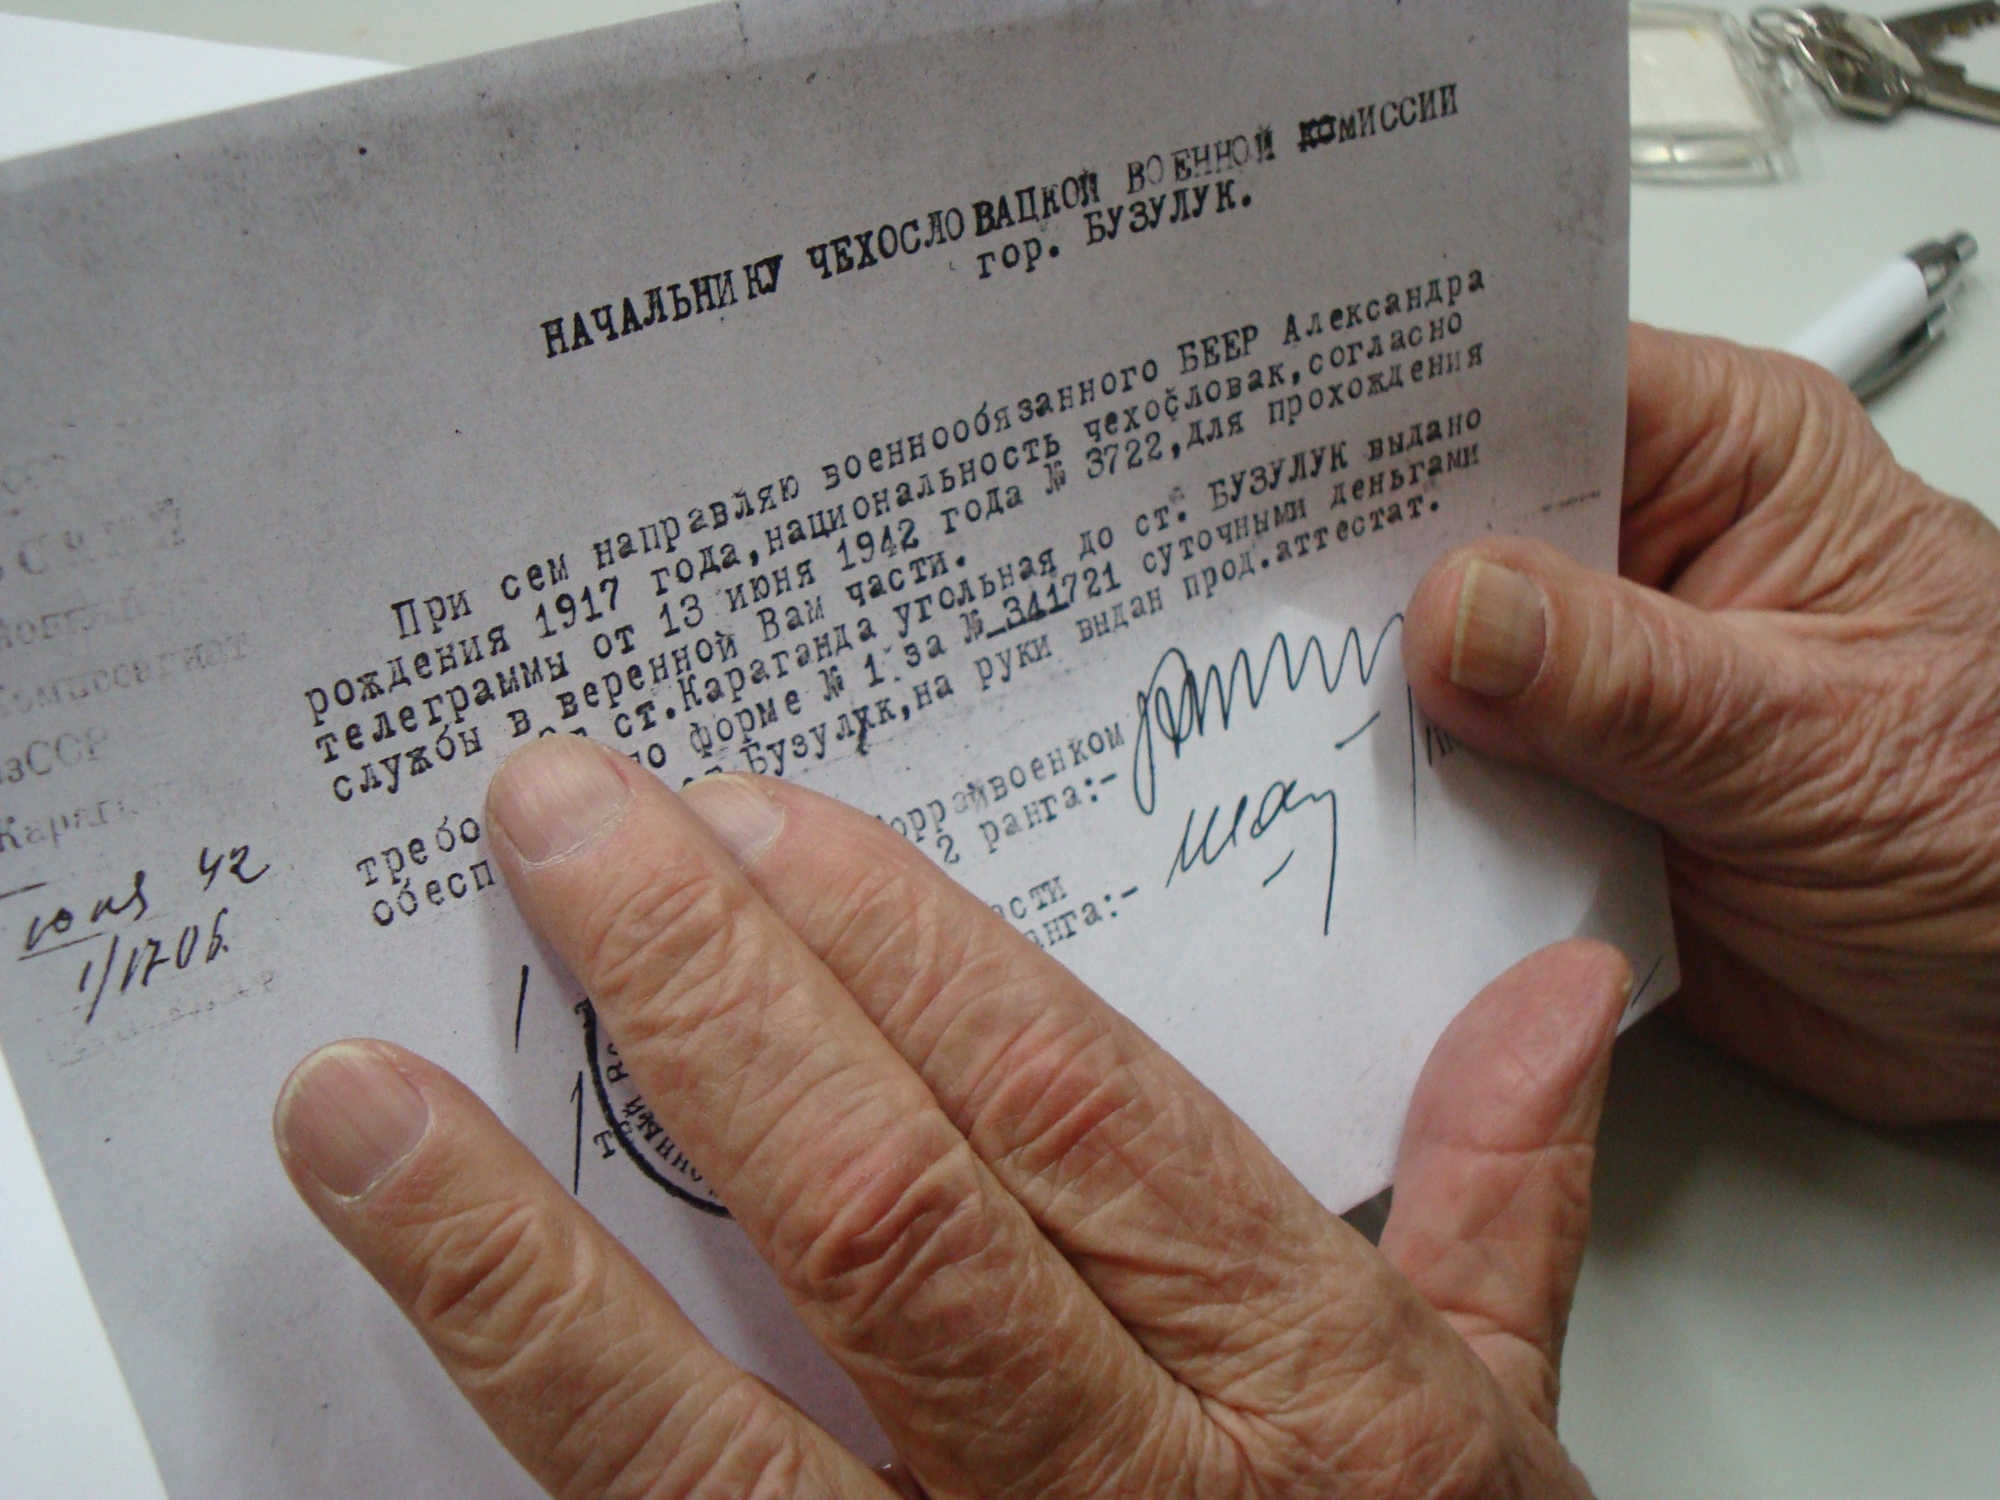 НАЧАЛЬНИКУ ЧЕХОСЛОВАЦКОЙ ВОЕННОЙ КОМИССИИ
гор. БУЗУЛУК.
При сем направляю военнообязанного БЕЕР Александра
рождения 1917 года,национальность чехословак,согласно
телеграммы от 13 июня 1942 года № 3722,для прохождения
службы в веренной Вам части.
ст.Караганда угольная до ст. БУЗУЛУК выдано
требо по форме № 1 за №_341721 суточными деньгами
обесп Бузулук,на руки выдан прод.аттестат.
горрайвоенком
2 ранга:-
части
ранга:-
Комиссариат
КазССР
июня 42
1/1706